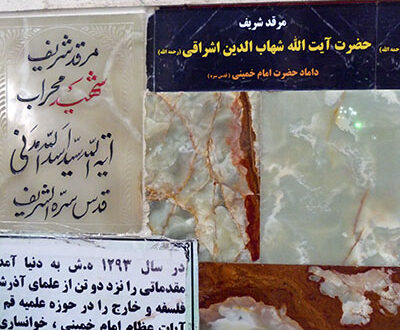 مرقد شریف
شهید محراب
آیة الله سید اسدالله مدنی
قدس سره الشریف
مرقد شریف
حضرت آیت الله شهاب الدین اشراقی (رحمه الله)
داماد حضرت امام خمینی (قدس سره)
در سال ۱۲۹۳ ه.ش به دنیا آمد
مقدماتی را نزد دو تن از علمای آذرش
فلسفه و خارج را در حوزه علمیه قم
آیات عظام امام خمینی ، خوانساری